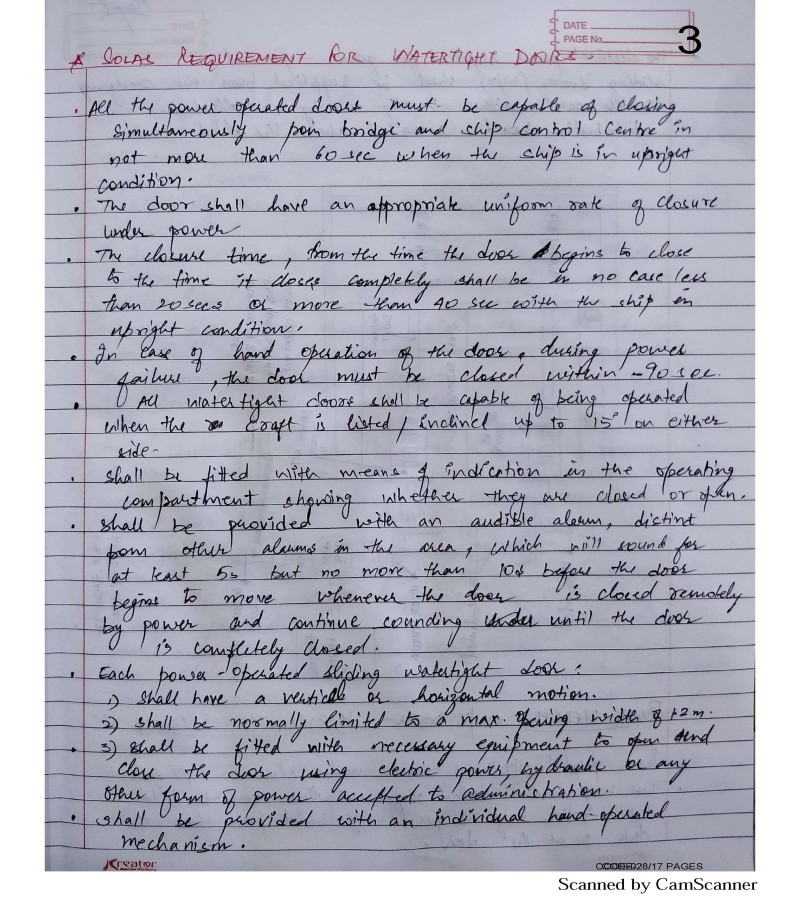 DATE
PAGE No.
3
* SOLAS REQUIREMENT FOR WATERTIGHT DOORS.
• All the power operated doors must be capable of closing
simultaneously from bridge and ship control centre in
not more than 60 sec when the ship is in upright
condition.
• The door shall have an appropriate uniform rate of closure
under power
• The closure time, from the time the door begins to close
to the time it closes completely shall be in no case less
than 20 secs or more than 40 sec with the ship in
upright condition.
• In case of hand operation of the door, during power
failure, the door must be closed within -90 sec.
• All watertight doors shall be capable of being operated
when the craft is listed/inclined up to 15° on either
side-
• shall be fitted with means of indication in the operating
compartment showing whether they are closed or open.
• shall be provided with an audible alarm, distint
from other alarms in the area, which will sound for
at least 5s but no more than 10s before the door
begins to move whenever the door is closed remotely
by power and continue sounding until the door
is completely closed.
• Each power-operated sliding watertight door:
1) shall have a vertical or horizontal motion.
2) shall be normally limited to a max. opening width of 1.2m.
• 3) shall be fitted with necessary equipment to open and
close the door using electric power, hydraulic or any
other form of power accepted to administration.
• shall be provided with an individual hand-operated
mechanism.
Kreator
28/17 PAGES
Scanned by CamScanner